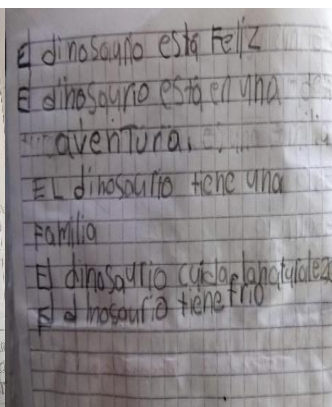 El dinosaurio está Feliz
El dinosaurio está en una
aventura.
EL dinosaurio tiene una
Familia
El dinosaurio cuida la naturaleza
El dinosaurio tiene frio